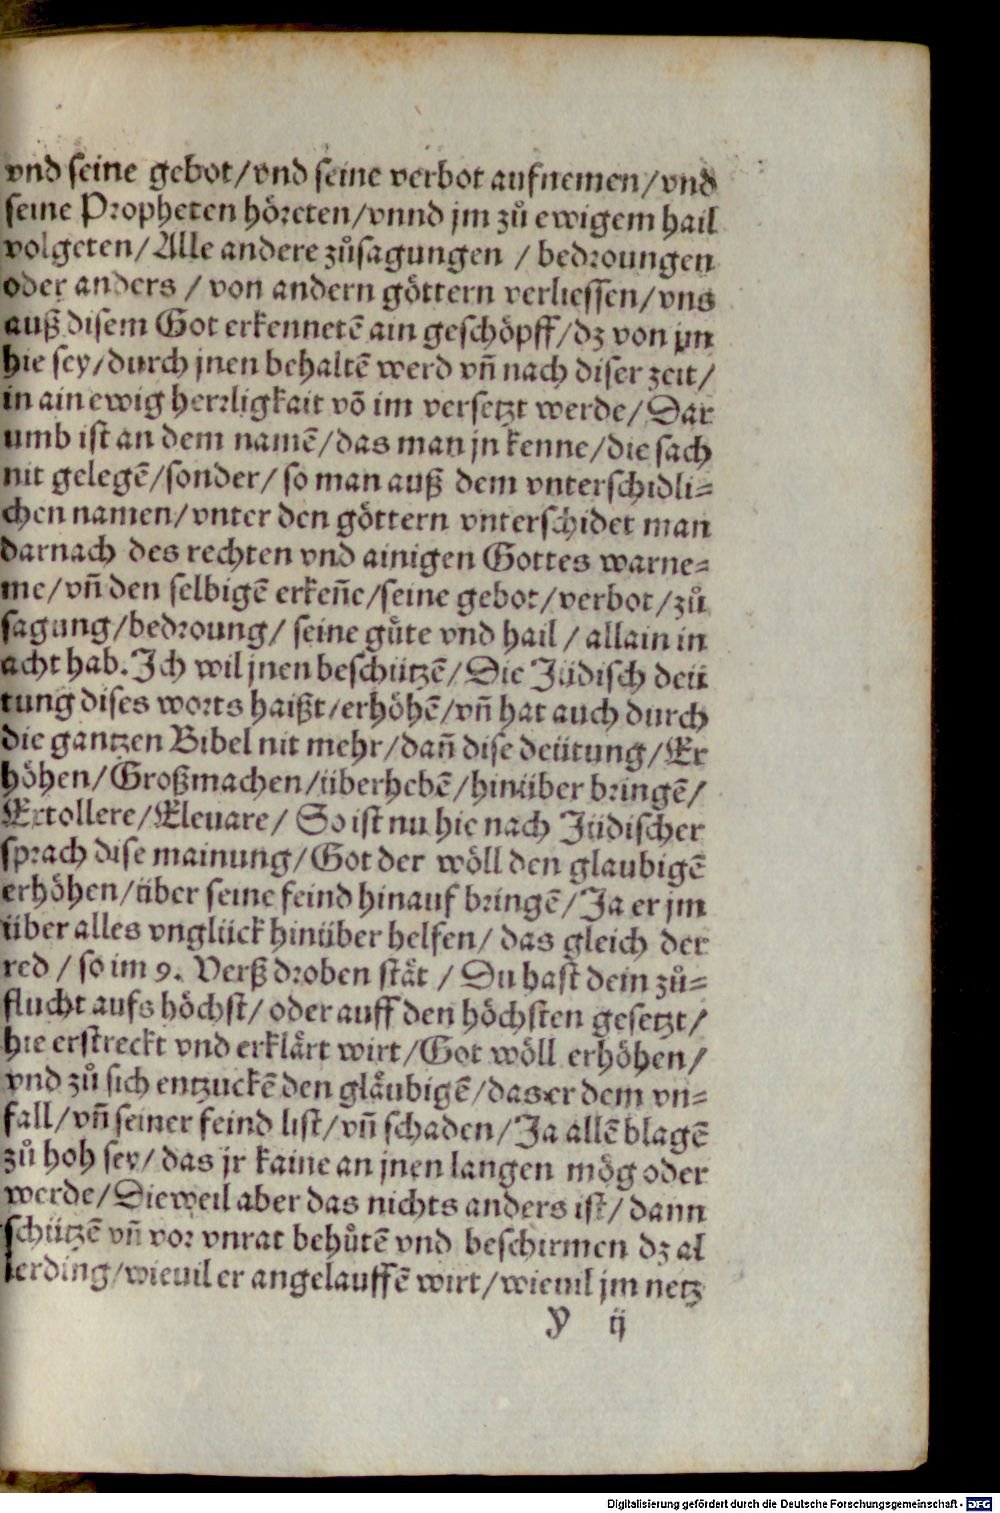 vnd seine gebot/vnd seine verbot aufnemen/vnd
seine Propheten höꝛeten/vnnd jm zů ewigem hail
volgeten/Alle andere zůsagungen / bedꝛoungen
oder anders / von andern göttern verliessen/vns
auß disem Got erkennetē ain geschöpff/dz von jm
hie sey/durch jnen behaltē werd vñ nach diser zeit/
in ain ewig herꝛligkait vō im versetzt werde/Dar
umb ist an dem namē/das man jn kenne/die sach
nit gelegē/sonder/ so man auß dem vnterschidli⸗
chen namen/vnter den göttern vnterschidet man
darnach des rechten vnd ainigen Gottes warne⸗
me/vñ den selbigē erkeñe/seine gebot/verbot/zů
sagung/bedꝛoung/ seine gůte vnd hail / allain in
acht hab. Ich wil jnen beschützē/Die Jüdisch deü
tung dises woꝛts haißt/erhöhē/vñ hat auch durch
die gantzen Bibel nit mehr/dañ dise deütung/Er
höhen/Großmachen/überhebē/hinüber bꝛingē/
Extollere/Eleuare/ So ist nu hie nach Jüdischer
spꝛach dise mainung/Got der wöll den glaubigē
erhöhen/über seine feind hinauf bꝛingē/Ja er jm
über alles vnglück hinüber helfen/ das gleich der
red / so im 9. Verß dꝛoben stät / Du hast dein zů⸗
flucht aufs höchst/ oder auff den höchsten gesetzt/
hie erstreckt vnd erklärt wirt/Got wöll erhöhen/
vnd zů sich entzuckē den gläubigē/das er dem vn⸗
fall/vñ seiner feind list/vñ schaden/Ja allē blagē
zů hoh sey/das jr kaine an jnen langen mög oder
werde/Dieweil aber das nichts anders ist/ dann
schützē vñ voꝛ vnrat behůtē vnd beschirmen dz al
lerding/wieuil er angelauffē wirt/wieuil jm netz
y ij
Digitalisierung gefördert durch die Deutsche Forschungsgemeinschaft - DFG